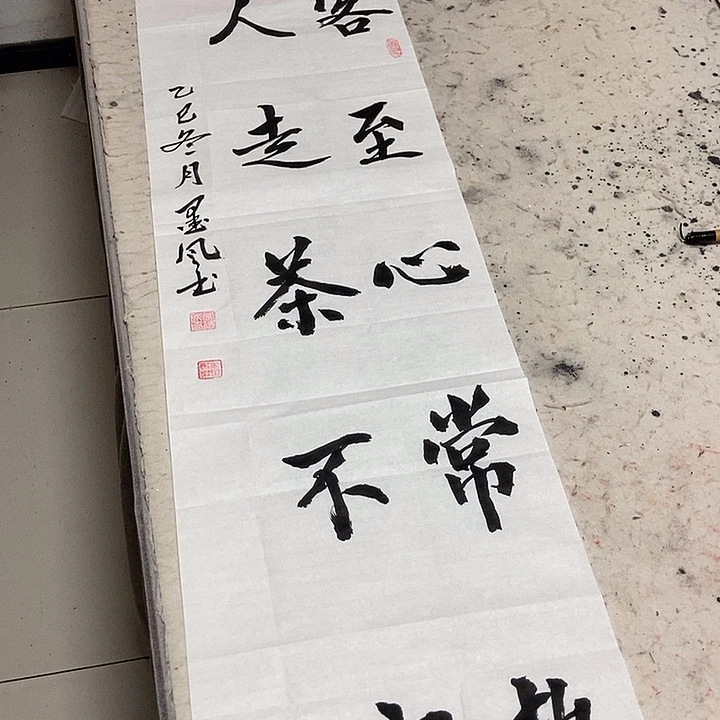 客至心常热
人走茶不凉
乙巳冬月墨风书